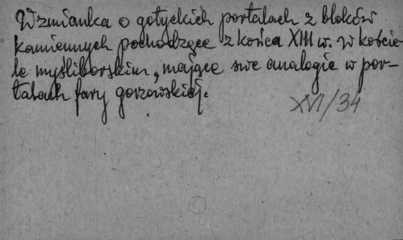 Wzmianka o gotyckich portalach z bloków
kamiennych pochodzące z końca XIII w. w koście-
le myśliborskim, mające swe analogie w por-
talach fary gorzowskiej.
XVI/34